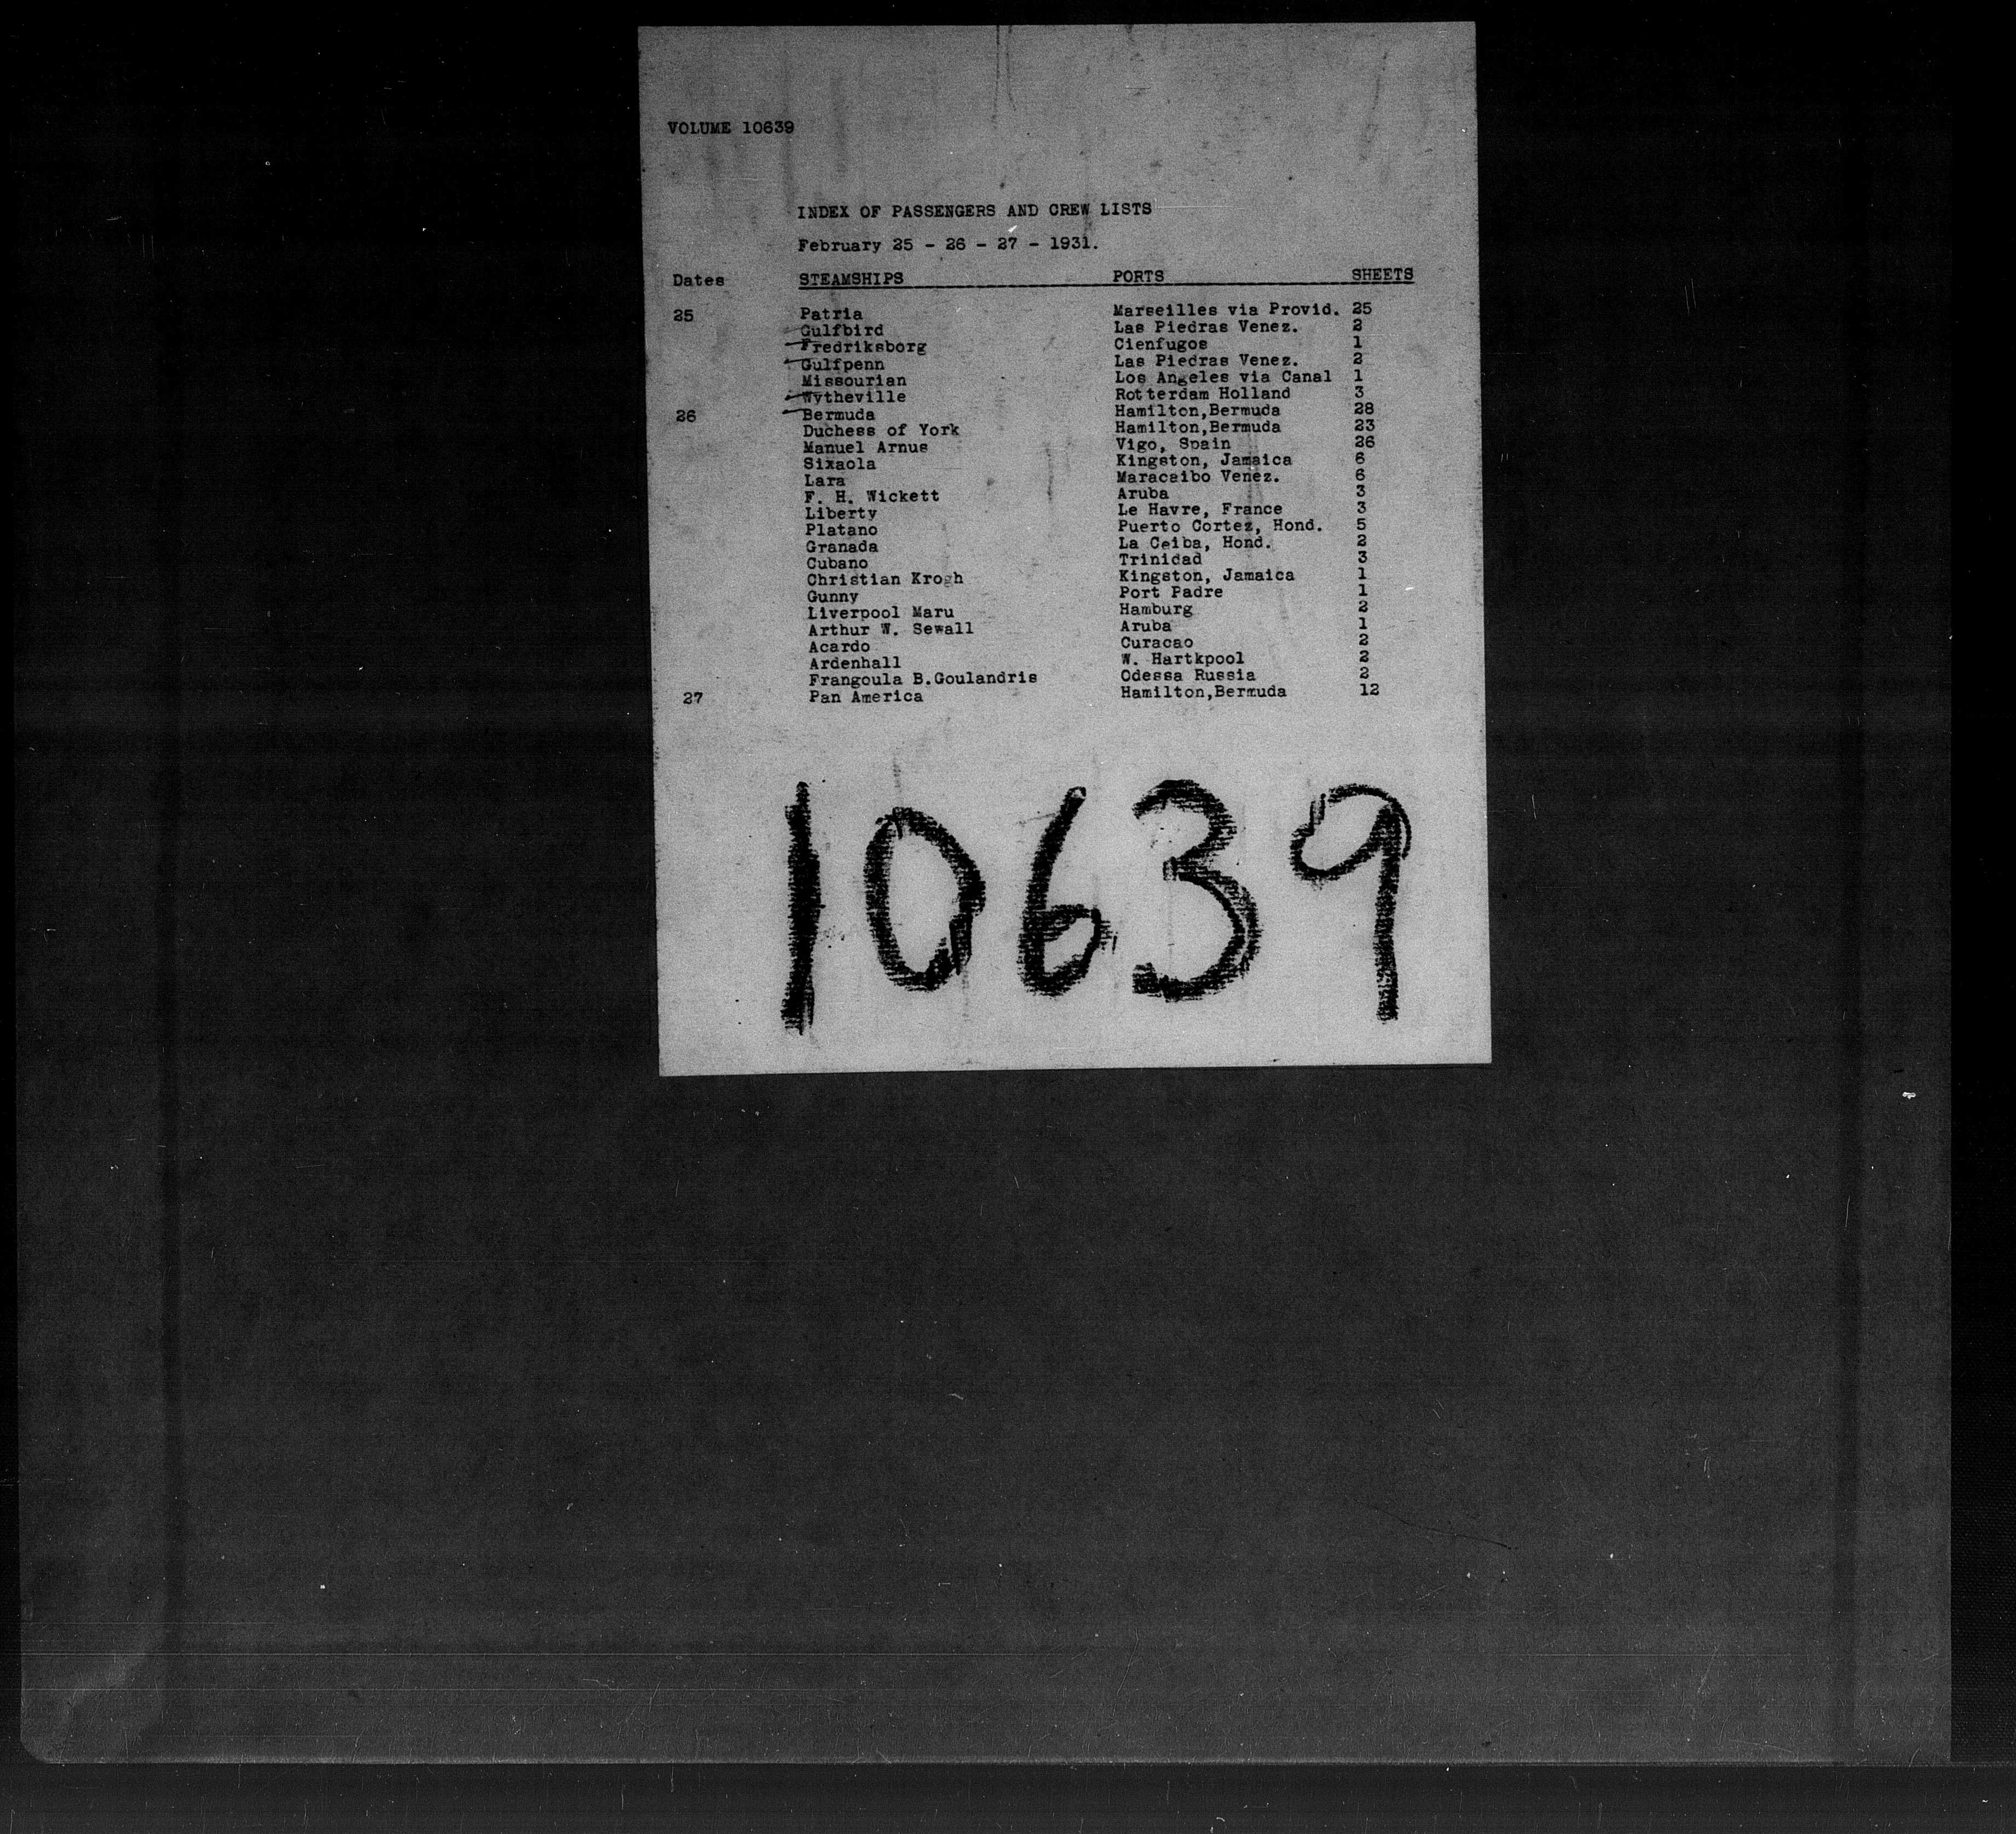 VOLUME 10639
INDEX OF PASSENGERS AND CREW LISTS
February 25 - 26 - 27 - 1931.
Dates STEAMSHIPS PORTS SHEETS
25 Patria Marseilles via Provid. 25
Gulfbird Las Piedras Venez. 2
Fredriksborg Cienfugos 1
Gulfpenn Las Piedras Venez. 2
Missourian Los Angeles via Canal 1
Wytheville Rotterdam Holland 3
26 Bermuda Hamilton,Bermuda 28
Duchess of York Hamilton,Bermuda 23
Manuel Arnus Vigo, Spain 26
Sixaola Kingston, Jamaica 6
Lara Maracaibo Venez. 6
F. H. Wickett Aruba 3
Liberty Le Havre, France 3
Platano Puerto Cortez, Hond. 5
Granada La Ceiba, Hond. 2
Cubano Trinidad 3
Christian Krogh Kingston, Jamaica 1
Gunny Port Padre 1
Liverpool Maru Hamburg 2
Arthur W. Sewall Aruba 1
Acardo Curacao 2
Ardenhall W. Hartkpool 2
Frangoula B.Goulandris Odessa Russia 2
27 Pan America Hamilton,Bermuda 12
10639